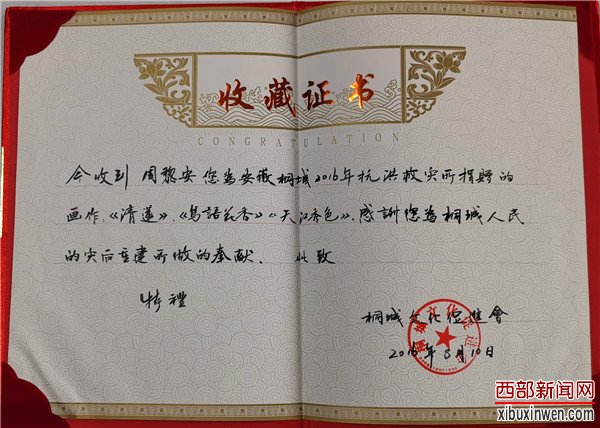 收藏证书
CONGRATULATION
今收到 周黎安您为安徽桐城2016年抗洪救灾所捐赠的
画作《清莲》、《鸟語花香》《天江秀色》,感謝您为桐城人民
的灾后重建所做的奉献、 此致
特禮
桐城文化促進會
2016年8月10日
西部新闻网
xibuxinwen.com